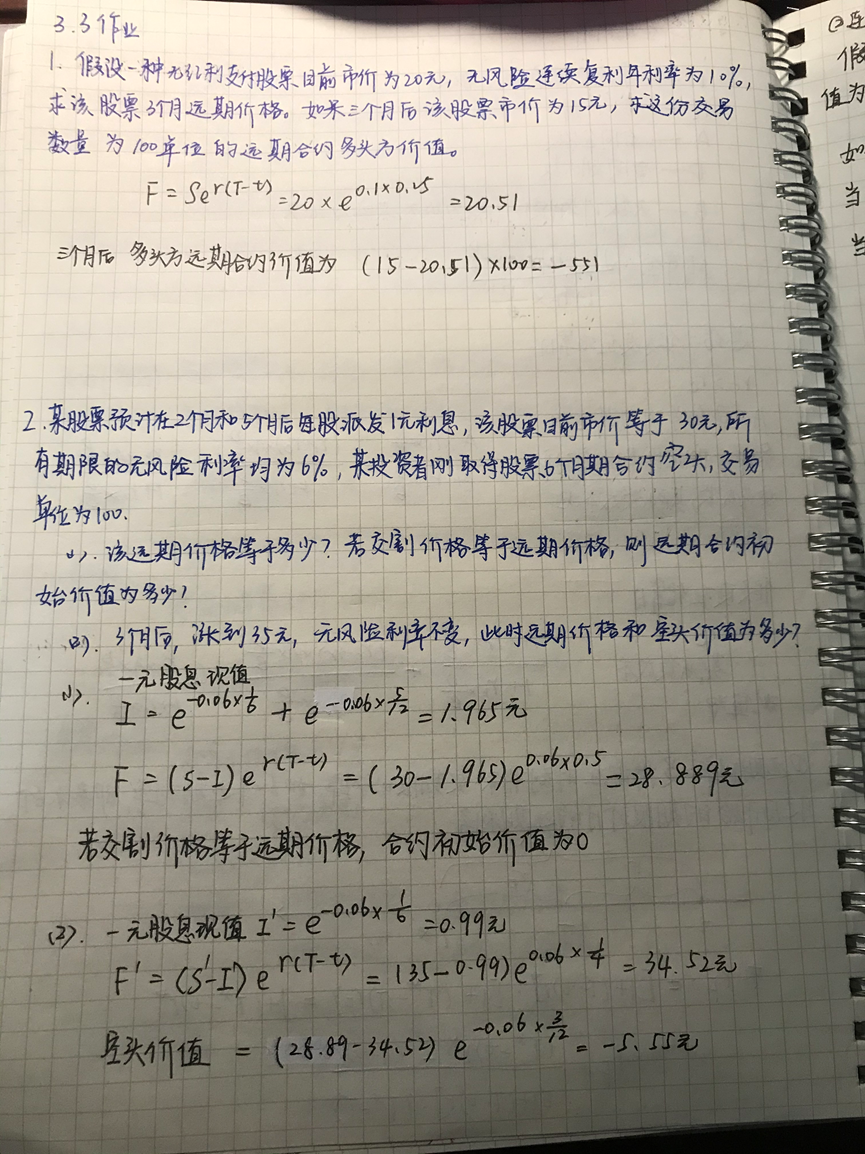 3.3作业
1. 假设一种无红利支付股票目前市价为20元，无风险连续复利年利率为10%，
求该股票3个月远期价格。如果三个月后该股票市价为15元，求这份交易
数量为100单位的远期合约多头方价值。
F = Se^{r(T-t)} = 20 × e^{0.1×0.25} = 20.51
三个月后 多头方远期合约价值为 (15-20.51)×100 = -551
2. 某股票预计在2个月和5个月后每股派发1元利息，该股票目前市价等于30元，所
有期限的无风险利率均为6%，某投资者刚取得股票6个月期合约空头，交易
单位为100.
(1). 该远期价格等于多少？若交割价格等于远期价格，则远期合约初
始价值为多少？
(2). 3个月后，涨到35元，无风险利率不变，此时远期价格和空头价值为多少？
一元股息现值
(1). I = e^{-0.06×1/6} + e^{-0.06×5/12} = 1.965元
F = (S-I) e^{r(T-t)} = (30-1.965)e^{0.06×0.5} = 28.889元
若交割价格等于远期价格，合约初始价值为0
(2). 一元股息现值 I' = e^{-0.06×1/6} = 0.99元
F' = (S'-I') e^{r(T-t)} = (35-0.99)e^{0.06×1/4} = 34.52元
空头价值 = (28.89-34.52) e^{-0.06×3/12} = -5.55元
②连
假
值为
如
当
当